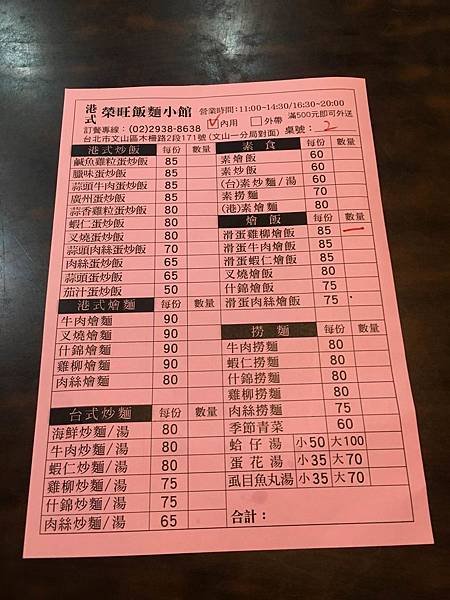 港式 榮旺飯麵小館 營業時間:11:00~14:30/16:30~20:00
訂餐專線：(02)2938-8638 ☑內用 □外帶 滿500元即可外送
台北市文山區木柵路2段171號(文山一分局對面) 桌號：2
港式炒飯 每份 數量
鹹魚雞粒蛋炒飯 85
臘味蛋炒飯 85
蒜頭牛肉蛋炒飯 85
廣州蛋炒飯 85
蒜香雞粒蛋炒飯 80
蝦仁蛋炒飯 80
叉燒蛋炒飯 80
蒜頭肉絲蛋炒飯 70
肉絲蛋炒飯 65
蒜頭蛋炒飯 65
茄汁蛋炒飯 50
港式燴麵 每份 數量
牛肉燴麵 90
叉燒燴麵 90
什錦燴麵 90
雞柳燴麵 90
肉絲燴麵 80
台式炒麵 每份 數量
海鮮炒麵/湯 80
牛肉炒麵/湯 80
蝦仁炒麵/湯 80
雞柳炒麵/湯 75
什錦炒麵/湯 75
肉絲炒麵/湯 65
素食 每份 數量
素燴飯 60
素炒飯 60
(台)素炒麵/湯 60
素撈麵 70
(港)素燴麵 80
燴飯 每份 數量
滑蛋雞柳燴飯 85 一
滑蛋牛肉燴飯 85
滑蛋蝦仁燴飯 85
叉燒燴飯 80
什錦燴飯 75
滑蛋肉絲燴飯 75
撈麵 每份 數量
牛肉撈麵 80
蝦仁撈麵 80
什錦撈麵 80
雞柳撈麵 80
肉絲撈麵 75
季節青菜 60
蛤仔湯 小50 大100
蛋花湯 小35 大70
虱目魚丸湯 小35 大70
合計：